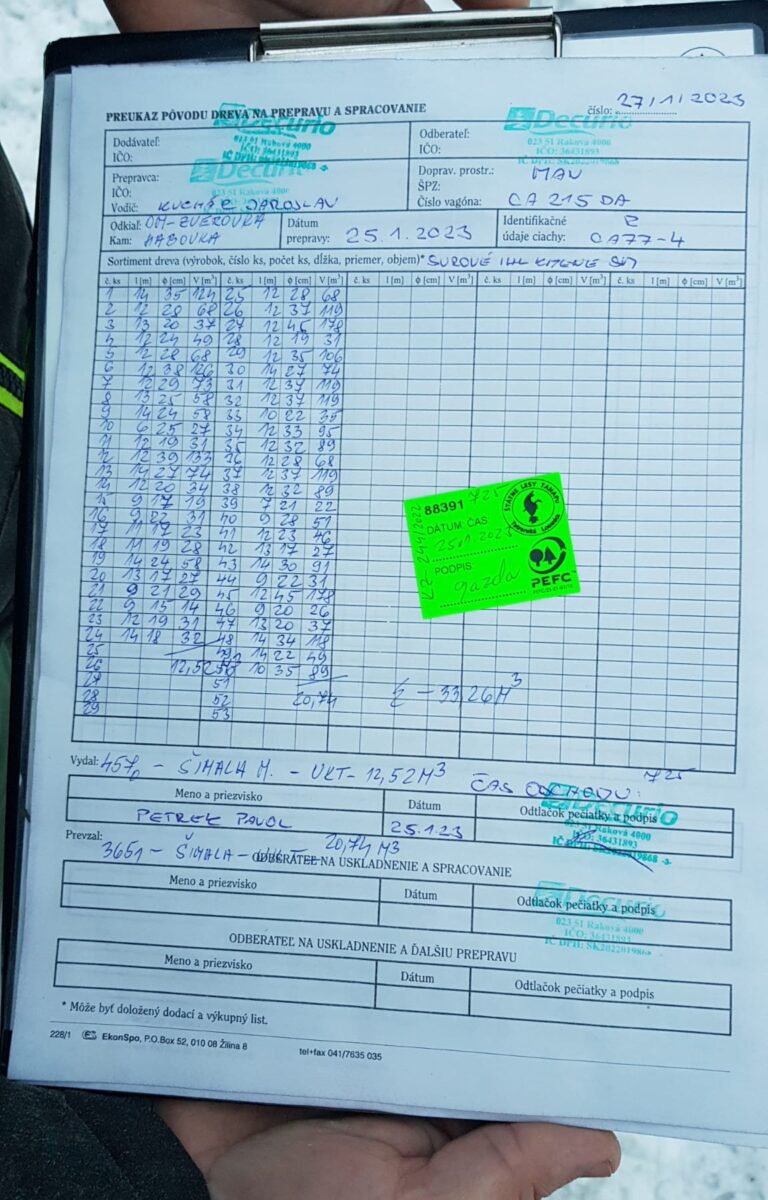 PREUKAZ PÔVODU DREVA NA PREPRAVU A SPRACOVANIE
číslo: 27/1/2023
Decurio
023 51 Raková 4000
IČO: 36431893
IČ DPH: SK2022019868
Decurio
023 51 Raková 4000
IČO: 36431893
IČ DPH: SK2022019868
Decurio
Dodávateľ:
IČO:
Odberateľ:
IČO:
Prepravca:
IČO:
Vodič: JAROSLAV
Doprav. prostr.: MAN
ŠPZ:
Číslo vagóna: CA 215 DA
Odkiaľ: OM-ZVEROVKA
Kam: HABOVKA
Dátum prepravy: 25.1.2023
Identifikačné
údaje ciachy: CA77-4
Sortiment dreva (výrobok, číslo ks, počet ks, dĺžka, priemer, objem)* SUROVÉ
č. ks l [m] ϕ [cm] V [m³] č. ks l [m] ϕ [cm] V [m³] č. ks l [m] ϕ [cm] V [m³] č. ks l [m] ϕ [cm] V [m³]
1 14 35 124 25 12 28 68
2 12 28 68 26 12 37 119
3 13 20 37 27 12 45 178
4 12 24 49 28 12 19 31
5 12 28 68 29 12 35 106
6 12 38 126 30 14 27 74
7 12 29 73 31 12 37 119
8 13 25 58 32 12 37 119
9 14 24 58 33 10 22 35
10 6 25 27 34 12 33 95
11 12 19 31 35 12 32 89
12 12 39 133 36 12 28 68
13 14 27 74 37 12 37 119
14 12 20 34 38 12 32 89
15 9 17 19 39 7 21 22
16 9 22 31 40 9 28 51
17 11 17 23 41 12 23 46
18 11 19 28 42 13 17 27
19 14 24 58 43 14 30 91
20 13 17 27 44 9 22 31
21 9 21 29 45 12 45 178
22 9 15 14 46 9 20 26
23 12 19 31 47 13 20 37
24 14 18 32 48 14 34 118
25 49 14 22 49
26 12,52 50 10 35 89
27 51
28 52 20,74
29 53
Σ - 33,26 M³
88391 725
DÁTUM ČAS
25.01.2023
PODPIS
gazda
ŠTÁTNE LESY TANAPU
Tatranská Lomnica
PEFC
Vydal: ŠIMALA M. - VKT- 12,52M³
ČAS ODCHODU: 725
Meno a priezvisko Dátum Odtlačok pečiatky a podpis
PETREK PAVOL 25.1.23
Decurio
023 51 Raková 4000
IČO: 36431893
IČ DPH: SK2022019868
Prevzal: 3651 - ŠIMALA 20,74 M3
ODBERATEĽ NA USKLADNENIE A SPRACOVANIE
Meno a priezvisko Dátum Odtlačok pečiatky a podpis
Decurio
023 51 Raková 4000
IČO: 36431893
IČ DPH: SK2022019868
ODBERATEĽ NA USKLADNENIE A ĎALŠIU PREPRAVU
Meno a priezvisko Dátum Odtlačok pečiatky a podpis
* Môže byť doložený dodací a výkupný list.
228/1 EkonSpo, P.O.Box 52, 010 08 Žilina 8 tel+fax 041/7635 035